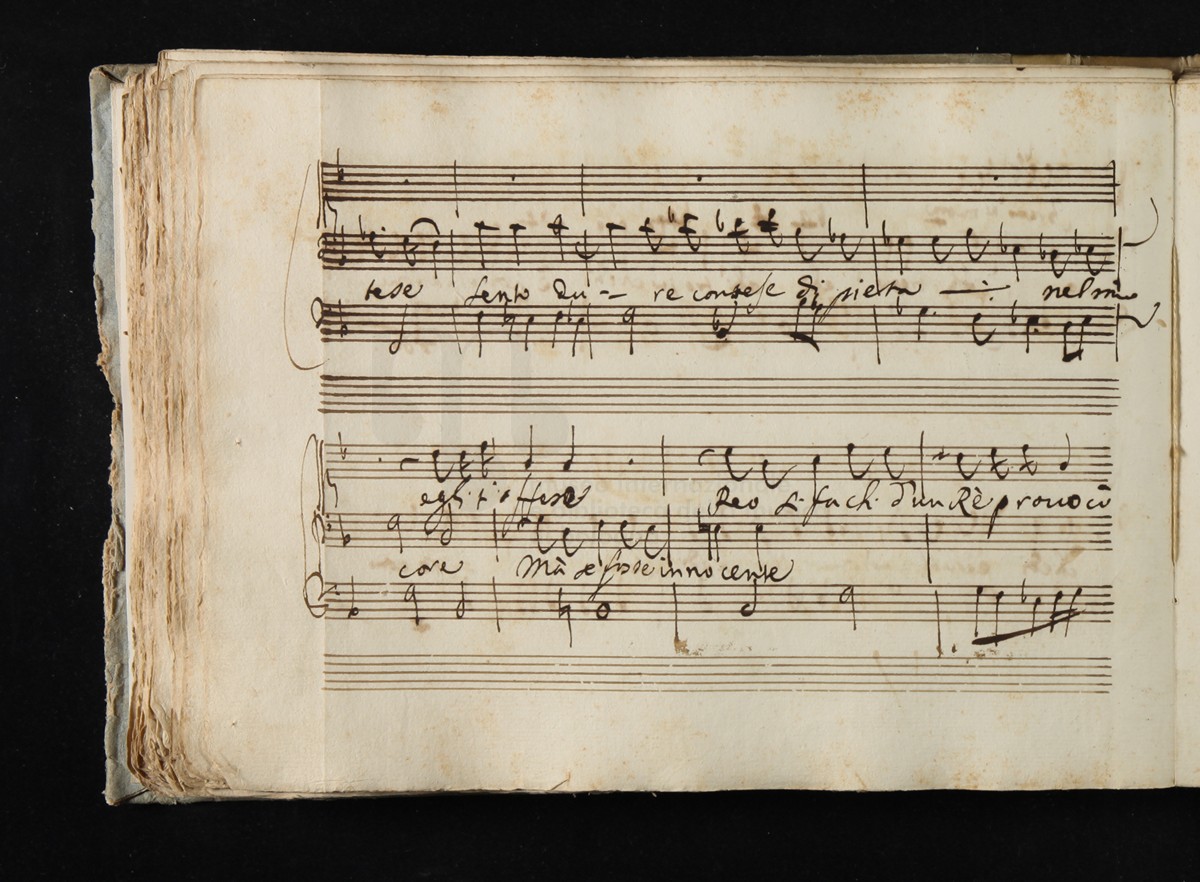 tese sento du - re contese di pietà nel mio
egli t'offese Reo si fa ch. d'un Rè prouocò
core Mà se fosse innocente